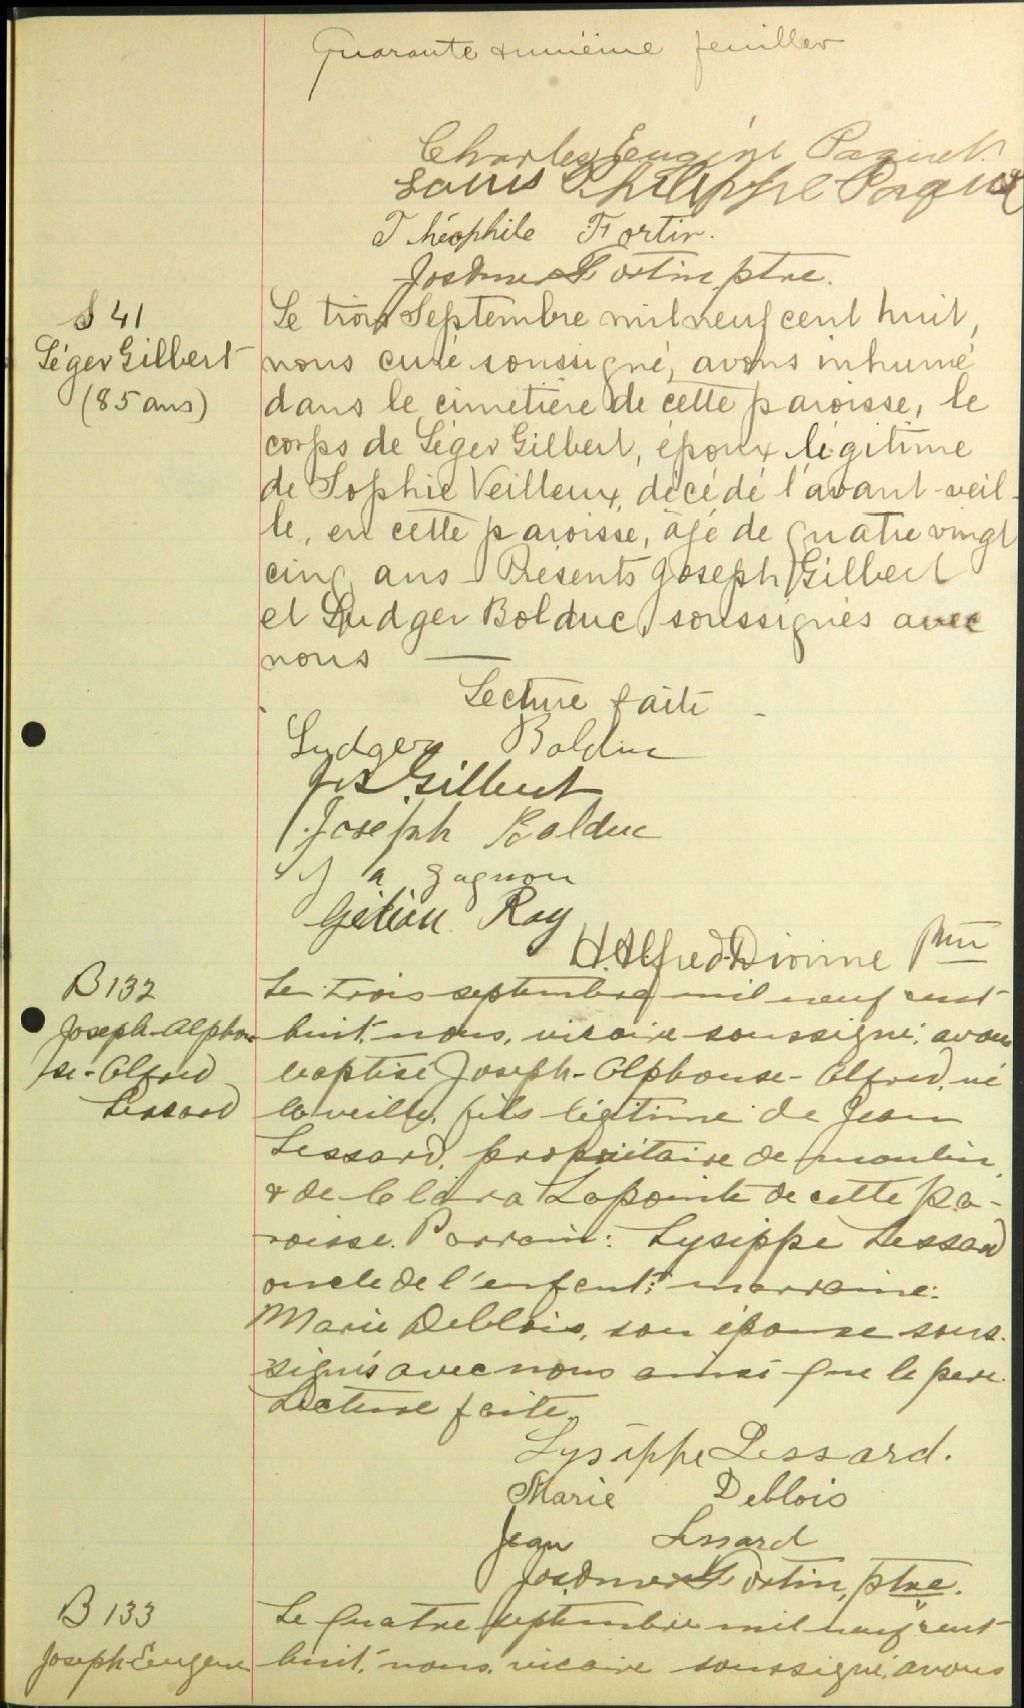 Quarante & unième feuillet
Charles Eugène Paquet
Louis Philippe Paquet
Théophile Fortin.
Jos Omer Fortin, ptre.
S 41
Léger Gilbert
(85 ans)
Le trois Septembre mil neuf cent huit,
nous curé soussigné, avons inhumé
dans le cimetière de cette paroisse, le
corps de Léger Gilbert, époux légitime
de Sophie Veilleux, décédé l'avant-veil-
le, en cette paroisse, âgé de quatre vingt
cinq ans - Présents Joseph Gilbert
et Ludger Bolduc, soussignés avec
nous —
Lecture faite -
Ludger Bolduc
Jos Gilbert
Joseph Bolduc
J a Gagnon
Gédéon Roy
H. Alfred Dionne Ptre
B 132
Joseph-Alphon-
se-Alfred
Lessard
Le trois septembre mil neuf cent
huit, nous, vicaire soussigné, avons
baptisé Joseph-Alphonse-Alfred, né
la veille, fils légitime de Jean
Lessard, propriétaire de moulin,
& de Clara Lapointe de cette pa-
roisse. Parrain: Lysippe Lessard
oncle de l'enfant; marraine:
Marie Deblois, son épouse sous-
signés avec nous ainsi que le père.
Lecture faite.
Lysippe Lessard.
Marie Deblois
Jean Lessard
Jos Omer Fortin, ptre.
B 133
Joseph-Eugène
Le quatre septembre mil neuf cent
huit, nous, vicaire soussigné, avons